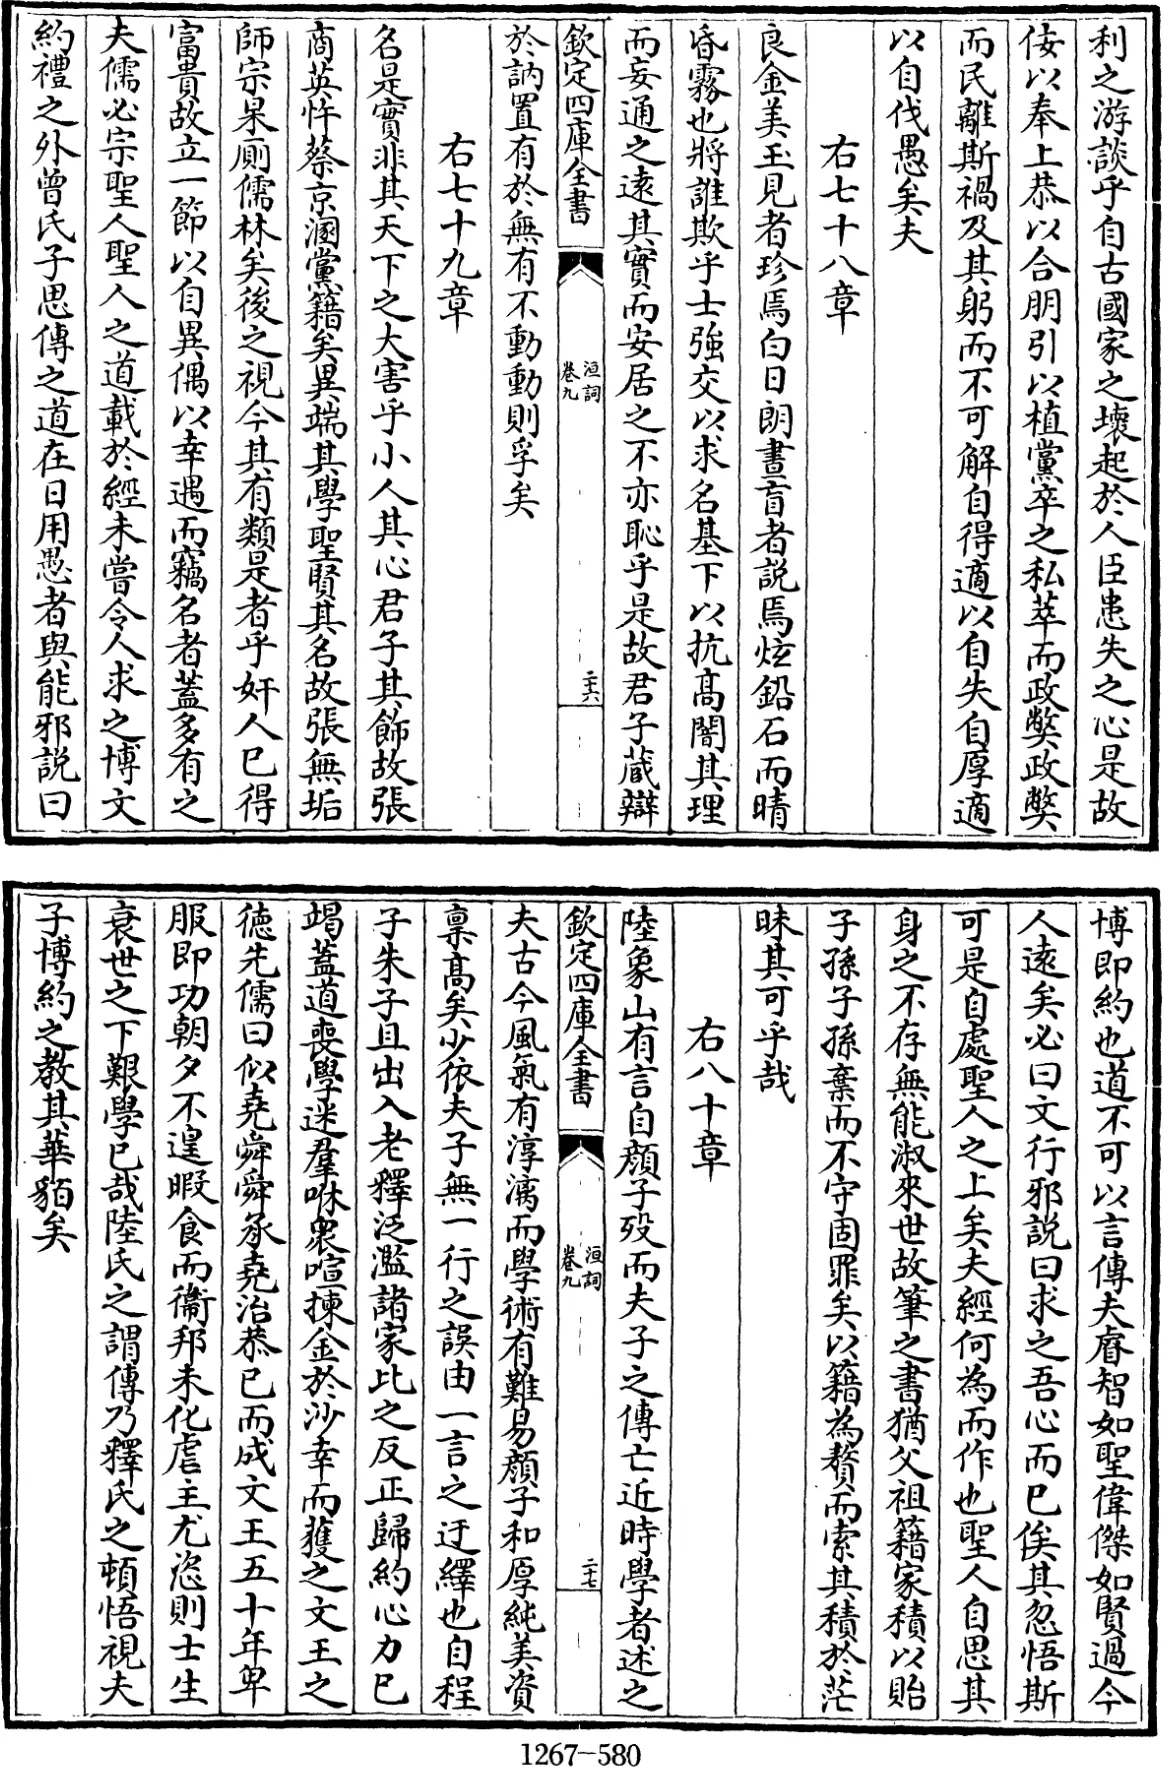 利之游談乎自古國家之壞起於人臣患失之心是故
佞以奉上恭以合朋引以植黨卒之私萃而政弊政弊
而民離斯禍及其躬而不可解自得適以自失自厚適
以自伐愚矣夫
右七十八章
良金美玉見者珍焉白日朗晝盲者説焉炫鉛石而晴
昏霧也將誰欺乎士強交以求名基下以抗高闇其理
而妄通之遠其實而安居之不亦恥乎是故君子蔵辯
欽定四庫全書
洹詞
卷九
二六
於訥置有於無有不動動則孚矣
右七十九章
名是實非其天下之大害乎小人其心君子其飾故張
商英忤蔡京溷黨籍矣異端其學聖賢其名故張無垢
師宗杲廁儒林矣後之視今其有類是者乎奸人已得
富貴故立一節以自異偶以幸遇而竊名者蓋多有之
夫儒必宗聖人聖人之道載於經未嘗令人求之博文
約禮之外曾氏子思傳之道在日用愚者與能邪説曰
博即約也道不可以言傳夫睿智如聖偉傑如賢過今
人遠矣必曰文行邪説曰求之吾心而已俟其忽悟斯
可是自處聖人之上矣夫經何為而作也聖人自思其
身之不存無能淑來世故筆之書猶父祖籍家積以貽
子孫子孫棄而不守固罪矣以籍為贅而索其積於茫
昧其可乎哉
右八十章
陸象山有言自顔子殁而夫子之傳亡近時學者述之
欽定四庫全書
洹詞
卷九
二七
夫古今風氣有淳漓而學術有難易顔子和厚純美資
禀高矣少依夫子無一行之誤由一言之迂繹也自程
子朱子且出入老釋泛濫諸家比之反正歸約心力已
竭蓋道喪學迷羣咻衆喧揀金於沙幸而獲之文王之
徳先儒曰似堯舜舜承堯治恭已而成文王五十年卑
服即功朝夕不遑暇食而衞邦未化虐主尤恣則士生
衰世之下艱學已哉陸氏之謂傳乃釋氏之頓悟視夫
子博約之教其華貊矣
1267-580